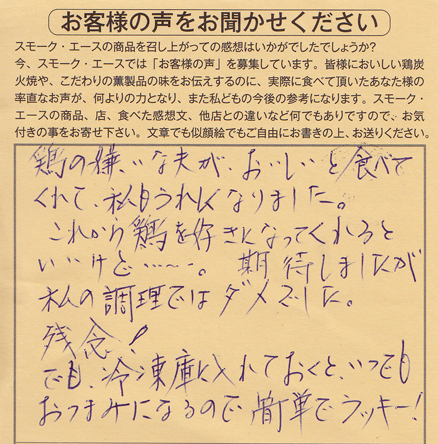 お客様の声をお聞かせください
スモーク・エースの商品を召し上がっての感想はいかがでしたでしょうか?
今、スモーク・エースでは「お客様の声」を募集しています。皆様においしい鶏炭
火焼や、こだわりの薫製品の味をお伝えするのに、実際に食べて頂いたあなた様の
率直なお声が、何よりの力となり、また私どもの今後の参考になります。スモーク・
エースの商品、店、食べた感想文、他店との違いなど何でもありですので、お気
付きの事をお寄せ下さい。文章でも似顔絵でもご自由にお書きの上、お送りください。
鶏の嫌いな夫が、おいしいと食べて
くれて、私もうれしくなりました。
これから鶏を好きになってくれると
いいけど……。 期待しましたが
私の調理ではダメでした。
残念!
でも、冷凍庫に入れておくと、いつでも
おつまみになるので簡単でラッキー!